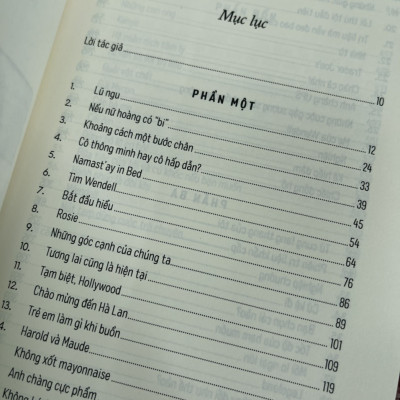 Mục lục
Lời tác giả 10
PHẦN MỘT
1. Lũ ngu 12
2. Nếu nữ hoàng có "bi" 24
3. Khoảng cách một bước chân 33
4. Cô thông minh hay cô hấp dẫn? 39
5. Namast'ay in Bed 45
6. Tìm Wendell 54
7. Bắt đầu hiểu 64
8. Rosie 76
9. Những góc cạnh của chúng ta 86
10. Tương lai cũng là hiện tại 89
11. Tạm biệt, Hollywood 101
12. Chào mừng đến Hà Lan 109
13. Trẻ em làm gì khi buồn 119
4. Harold và Maude
Không xốt mayonnaise
Anh chàng cực phẩm